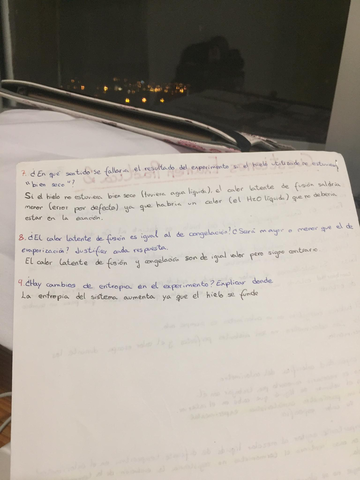 2. ¿En qué sentido se fallara el resultado del experimento si el hielo utilizado no estuviera
"bien seco"?
Si el hielo no estuviera bien seco (tuviera agua líquida), el calor latente de fusión saldría
menor (error por defecto) ya que habría un calor (el H2O líquida) que no debería
estar en la ecuación.
3. ¿El calor latente de fusión es igual al de congelación? ¿Será mayor o menor que el de
Justifica cada respuesta.
El calor latente de fusión y congelación son de igual valor pero signo contrario.
4. ¿Hay cambios de entropía en el experimento? Explicar donde.
La entropía del sistema aumenta ya que el hielo se funde